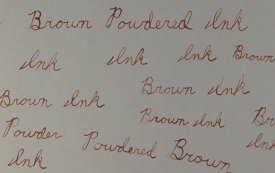 Brown Powdered Ink
Ink Ink Ink Brown
Brown Ink Brown Ink
Brown Ink
Powder Powdered Brown
Ink